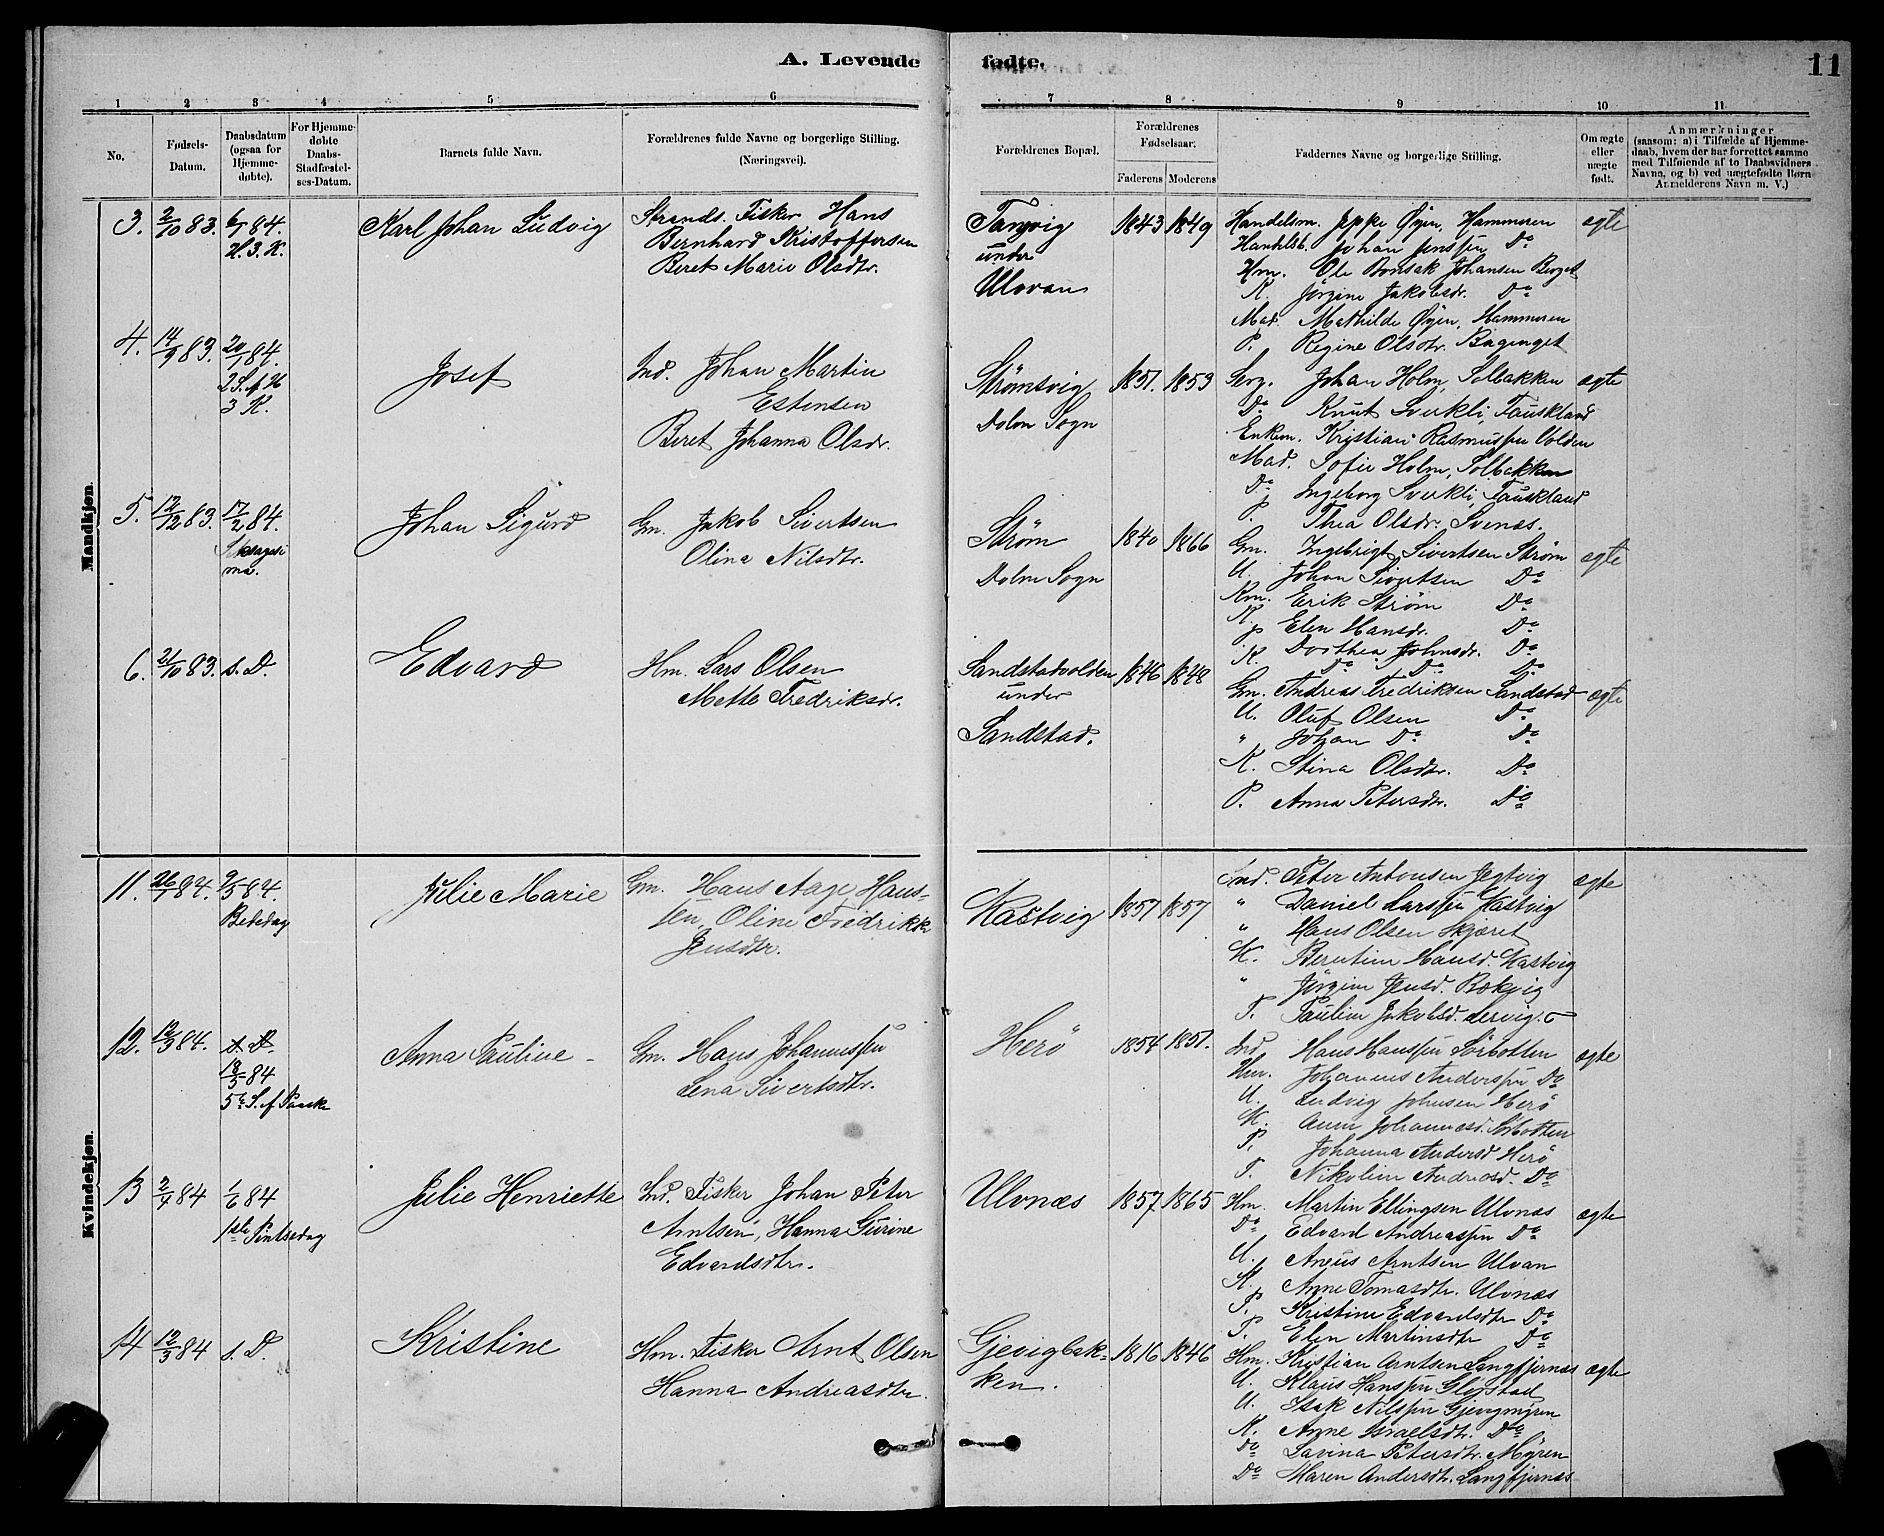 A. Levende fødte. 11
1 2 3 4 5 6 7 8 9 10 11
No.
Fødsels-
Datum.
Daabsdatum
(ogsaa for
Hjemme-
døbte).
For Hjemme-
døbte
Daabs-
Stadfæstel-
ses-Datum.
Barnets fulde Navn.
Forældrenes fulde Navne og borgerlige Stilling.
(Næringsvei).
Forældrenes Bopæl.
Forældrenes
Fødselsaar.
Faderens Moderens
Faddernes Navne og borgerlige Stilling.
Om ægte
eller
uægte
født.
Anmærkninger
(saasom: a) i Tilfælde af Hjemme-
daab, hvem der har forrettet samme
med Tilføiende af to Daabsvidners
Navne, og b) ved uægtefødte Børn
Anmelderens Navn m. V.)
Mandkjøn.
3. 2/10 83. 6/1 84.
H. 3. K.
Karl Johan Ludvig
Strands. Fisker Hans
Bernhard Kristoffersen
Beret Marie Olsdtr.
Tangvig
under
Ulvan
1843 1849
Handelsm. Jeppe Øyen, Hammeren
Handelsb. Johan Jenssen Do
Hm. Ole Bonsak Johansen Berget
K. Jørgine Jakobsdr. Do
Mad. Mathilde Øyen, Hammeren
P. Regine Olsdtr.
ægte
4. 14/9 83. 20/1 84.
2 S. f. H
3 K.
Josef
Ind. Johan Martin
Estensen
Beret Johanna Olsdr.
Strømsvig
Dolm Sogn
1851. 1853
Serg. Johan Holm, Solbakken
Do Knut Sverkli, Fauskland
Enkem. Kristian Rasmussen Volden
Mad. Sofie Holm, Solbakken
Do Ingeborg Sverkli, Fauskland
P. Thea Olsdr. Svenæs.
ægte
5. 12/12 83. 17/2 84.
ma.
Johan Sigurd
Gm. Jakob Sivertsen
Olina Nilsdtr.
Strøm
Dolm Sogn
1840 1866
Gm. Ingebrigt Sivertsen Strøm
U. Johan Sivertsen Do
Km. Erik Strøm Do
K. Elen Hansdr. Do
P. Dorthea Johnsdr. Do
K. Do Do Do
ægte
6. 21/10 83. s. D.
Edvard
Hm. Lars Olsen
Mette Fredriksdr.
Sandstadvolden
under
Sandstad.
1846 1848
Gm. Andreas Fredriksen Sandstad
U. Oluf Olsen Do
" Johan Do Do
K. Stina Olsdtr. Do
P. Anna Petersdtr. Do
ægte
Kvindekjøn.
11. 26/1 84. 9/5 84.
Bededag
Julie Marie
Gm. Hans Aage Hans-
sen, Oline Fredrikke
Jensdtr.
Kastvig
1857 1857
Ind. Peter Antonsen Jegtvig
" Daniel Larssen Kastvig
" Hans Olsen Skjæret
K. Berntine Hansd. Kastvig
" Jørgine Jensd. Bekvig
P. Pauline Jakobsd. Lervig
ægte
12. 12/3 84. s. D.
18/5 84
5te S. ef. Paaske
Anna Pauline
Gm. Hans Johannessen
Lena Sivertsdtr.
Herø
1854 1851.
Ind Hans Hanssen Sørbotten
Hm. Johannes Anderssen Do
U. Ludvig Johnsen Herø
K. Anne Johannesd. Sørbotten
P. Johanna Andersd Herø
P. Nikoline Andreasd. Do
ægte
13 2/4 84 1/6 84
1ste Pintsedag
Julie Henriette
Ind. Fisker Johan Peter
Arntsen, Hanna Gurine
Edvardsdtr.
Ulvnæs
1857 1865
Hm. Martin Ellingsen Ulvnæs
Do Edvard Andreassen Do
U. Aneus Arntsen Ulvan
K. Anne Tomasdtr. Ulvnæs
P. Kristine Edvardsdtr Do
P. Elen Martinsdtr Do
ægte
14 12/3 84 s. D.
Kristine
Hm. Fisker Arnt Olsen
Hanna Andreasdtr.
Gjevigbak-
ken.
1816 1846
Hm. Kristian Arntsen Langfjernæs
U. Klaus Hanssen Glørstad
U. Isak Nilssen Gjevigmyren
K. Anne Israelsdtr. Do
Do Lavina Petersdtr. Myren
Do Maren Andersdtr. Langfjernæs
ægte